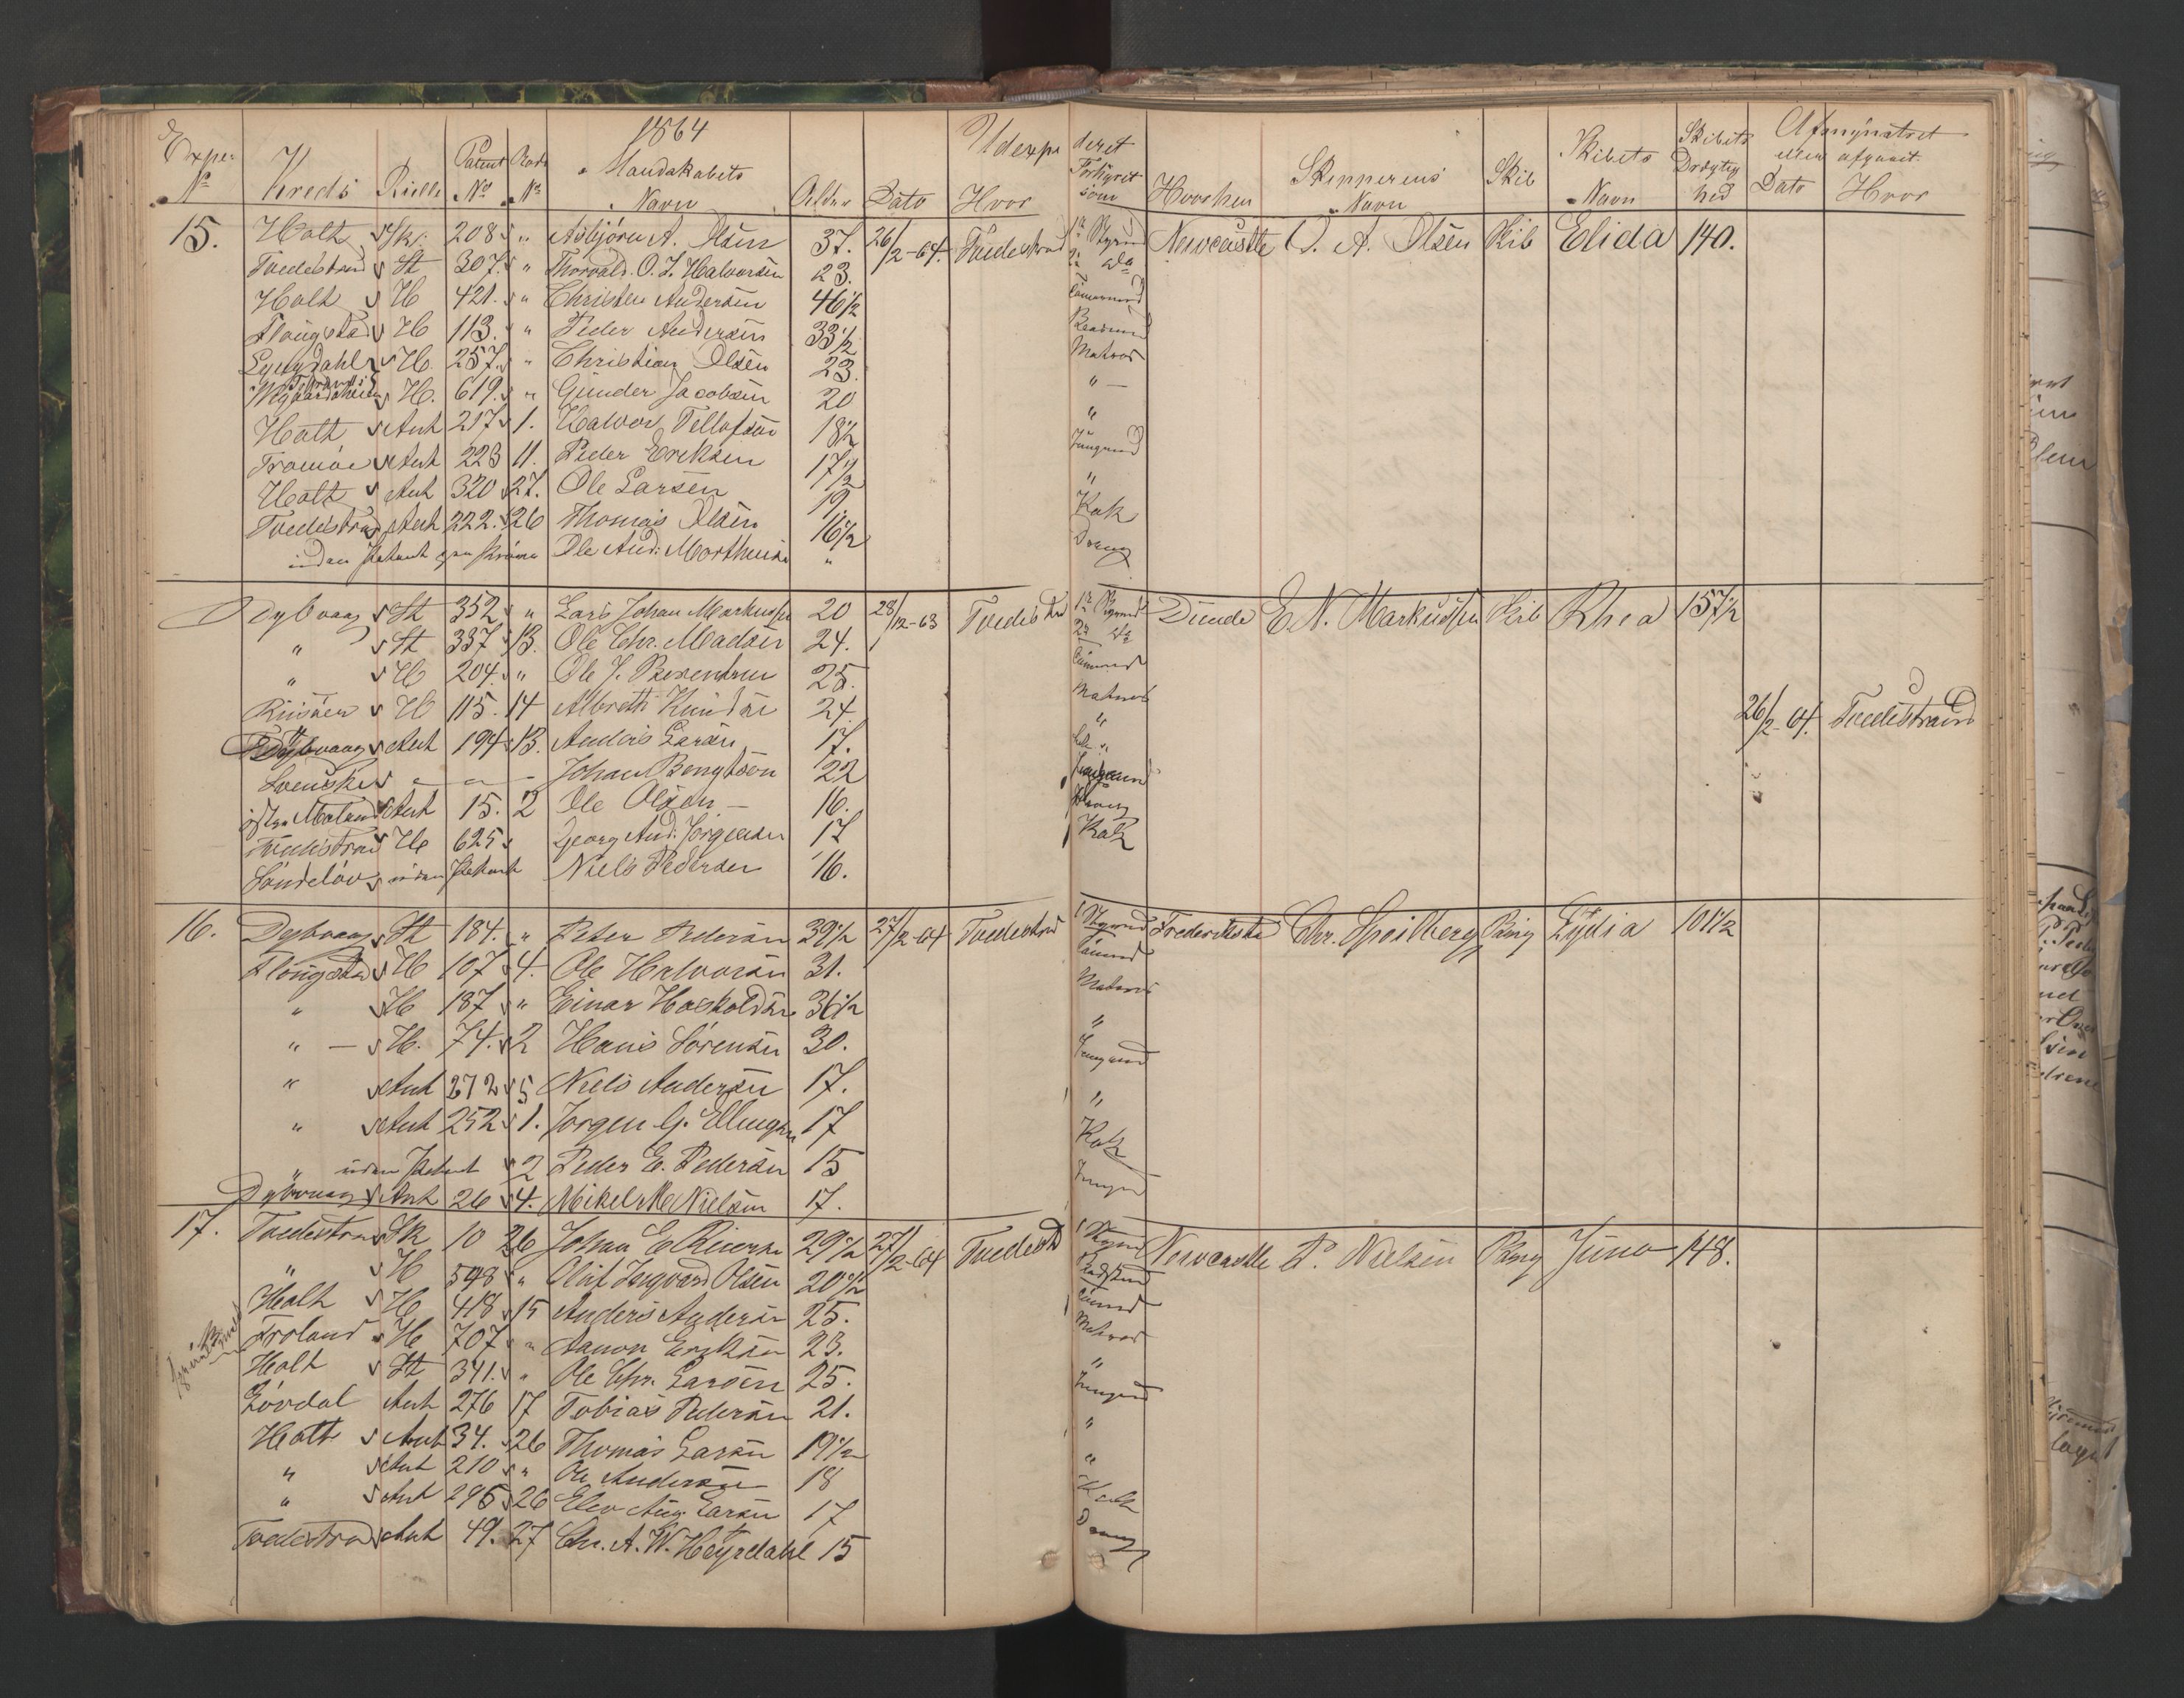 1864
Expe. Nº Kreds Rulle Patent Nº Rode Nº Mandskabets Navn Alder Dato Hvor Udexpederet Forhyret som Hvorhen Skipperens Navn Skib Skibets Navn Skibets Drægtighed Afmynstret eller afgaaet. Dato Hvor
15. Holt Sk. 208 " Asbjörn A. Olsen 37. 26/2-64. Tvedestrand 1ste Styrmd Newcastle O. A. Olsen Skib Elida 140.
Tvedestrand St 307. " Thorvald O. J. Halvorsen 23. 2den do
Holt H 421. " Christen Andersen 46 1/2 Tömmermd
Flangstad H 113. " Peder Andersen 33 1/2
Lyngdahl H. 257. " Christian Olsen 23. Matros
Vegaardsheien H. 619. " Gunder Jacobsen 20 " —
Holt Aut 217 1. Halvor Tellefsen 18 1/2 "
Tromöe Aut 223 11. Peder Eriksen 17 1/2 Jungmd
Holt Aut 320 27. Ole Larsen 19. "
Tvedestrand Aut 222. 26 Thomas Olsen 16 1/2 Kok
uden Patent Ole And. Morthensen " Dreng
Dybvaag St 352 " Lars Johan Markussen 20 28/12-63 Tvedestrd 1ste Styrmd Dunde E. N. Markussen Skib Rhea 157 1/2
" St 337 13. Ole Chr. Madsen 24. 2den do
" H 204. " Ole J. Berentsen 25. Tömmermd
Risöer H 115. 14 Albreth Knudsen 24. Matros 26/2-64. Tvedestrand
Dybvaag Aut 194 13. Anders Larsen 17. "
Svenske " — " — Johan Bengtson 22
östre Moland Aut 15. 2 Ole Olsen — 16. Jungmand
Tvedestrand H 625 Georg And. Jörgensen 17 Dreng
Söndelöv uden Patent Niels Pedersen 16. Kok
16. Dybvaag St 184. " Peter Pedersen 39 1/2 27/2-64 Tvedestrd 1 Styrmd Frederiksstad Chr. Speilberg Brig Lydia 101 1/2
Flangstad H 107 4. Ole Halvorsen 31. Tömmd
" H 187 " Einar Haskoldsen 36 1/2 Matros
" — H. 74. 2 Hans Sörensen 30. "
" Aut 272 5 Niels Andersen 17. Jungmand
" Aut 252 1. Jorgen G. Ellingsen 17 "
" uden Patent 2 Peder E. Pedersen 15 Kok
Dybvaag Aut 26 4. Mikel M. Nielsen 17. Jungmd
17. Tvedestrand Sk 10 26 Johan E. 29 1/2 27/2-64 Tvedestrd 1 Styrmd Newcastle P. Nielsen Brig Juno 148.
" H 548 " Oluf Ingvard Olsen 20 1/2
Holt H 418 15 Anders Andersen 25. Tömmd
Froland H 707 " Aanon Eriksen 23. Matros
Holt St 341. " Ole Chr. Larsen 25. "
Lövdal Aut 276 17 Tobias Pedersen 21. Jungmd
Holt Aut 34. 26 Thomas Larsen 19 1/2 "
" Aut 210 " Ole Andersen 18 "
" Aut 295 26 Elev Aug. Larsen 17 Kok
Tvedestrand Aut 49. 27 Chr. A. W. Heyerdahl 15 Dreng